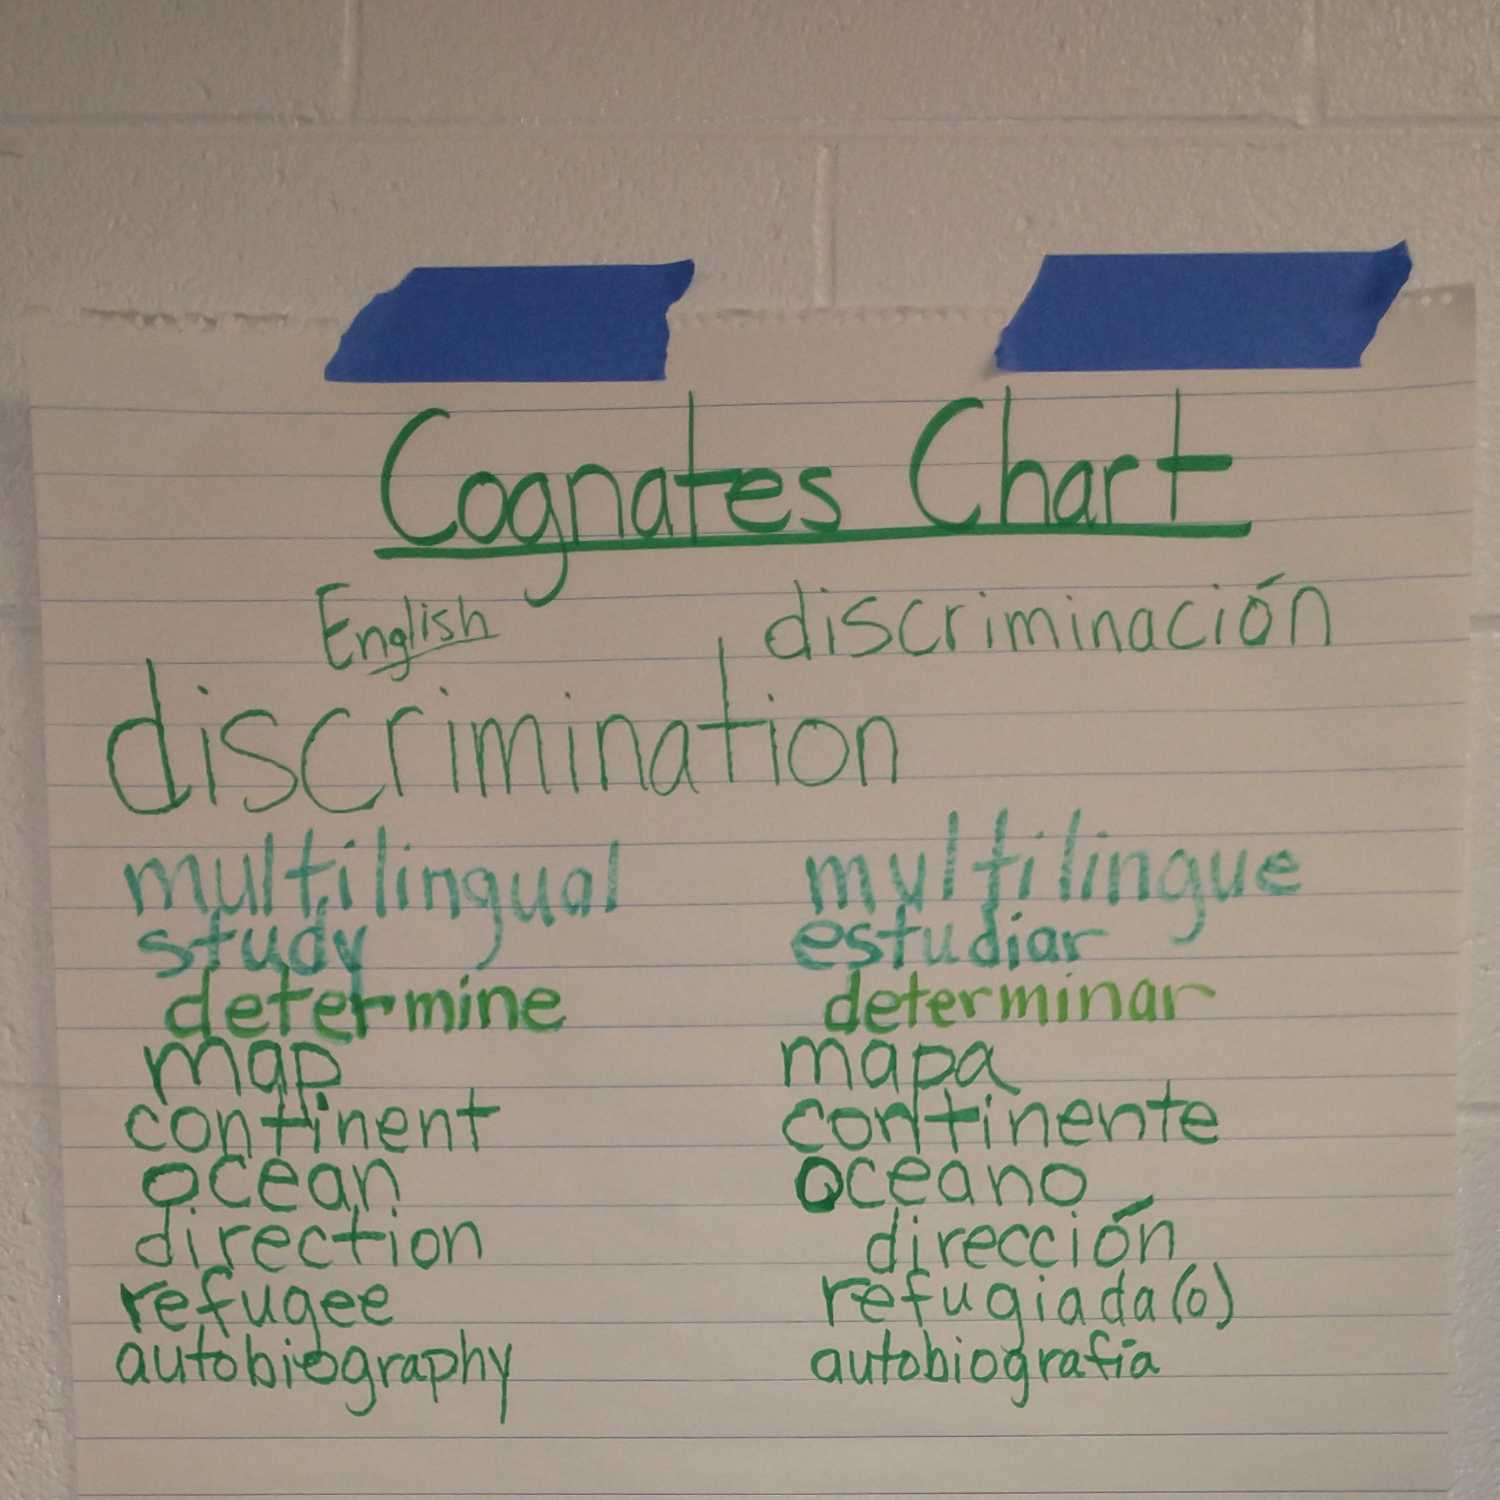 Cognates Chart
English discriminación
discrimination
multilingual multilingue
study estudiar
determine determinar
map mapa
continent continente
ocean oceano
direction dirección
refugee refugiada(o)
autobiography autobiografía